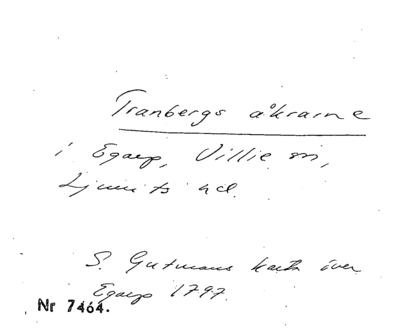 Tranbergs åkrarne
i Egarp, Villie sn,
Ljunits hd.
S. Gutmans karta över
Egarp 1797.
Nr 7464.